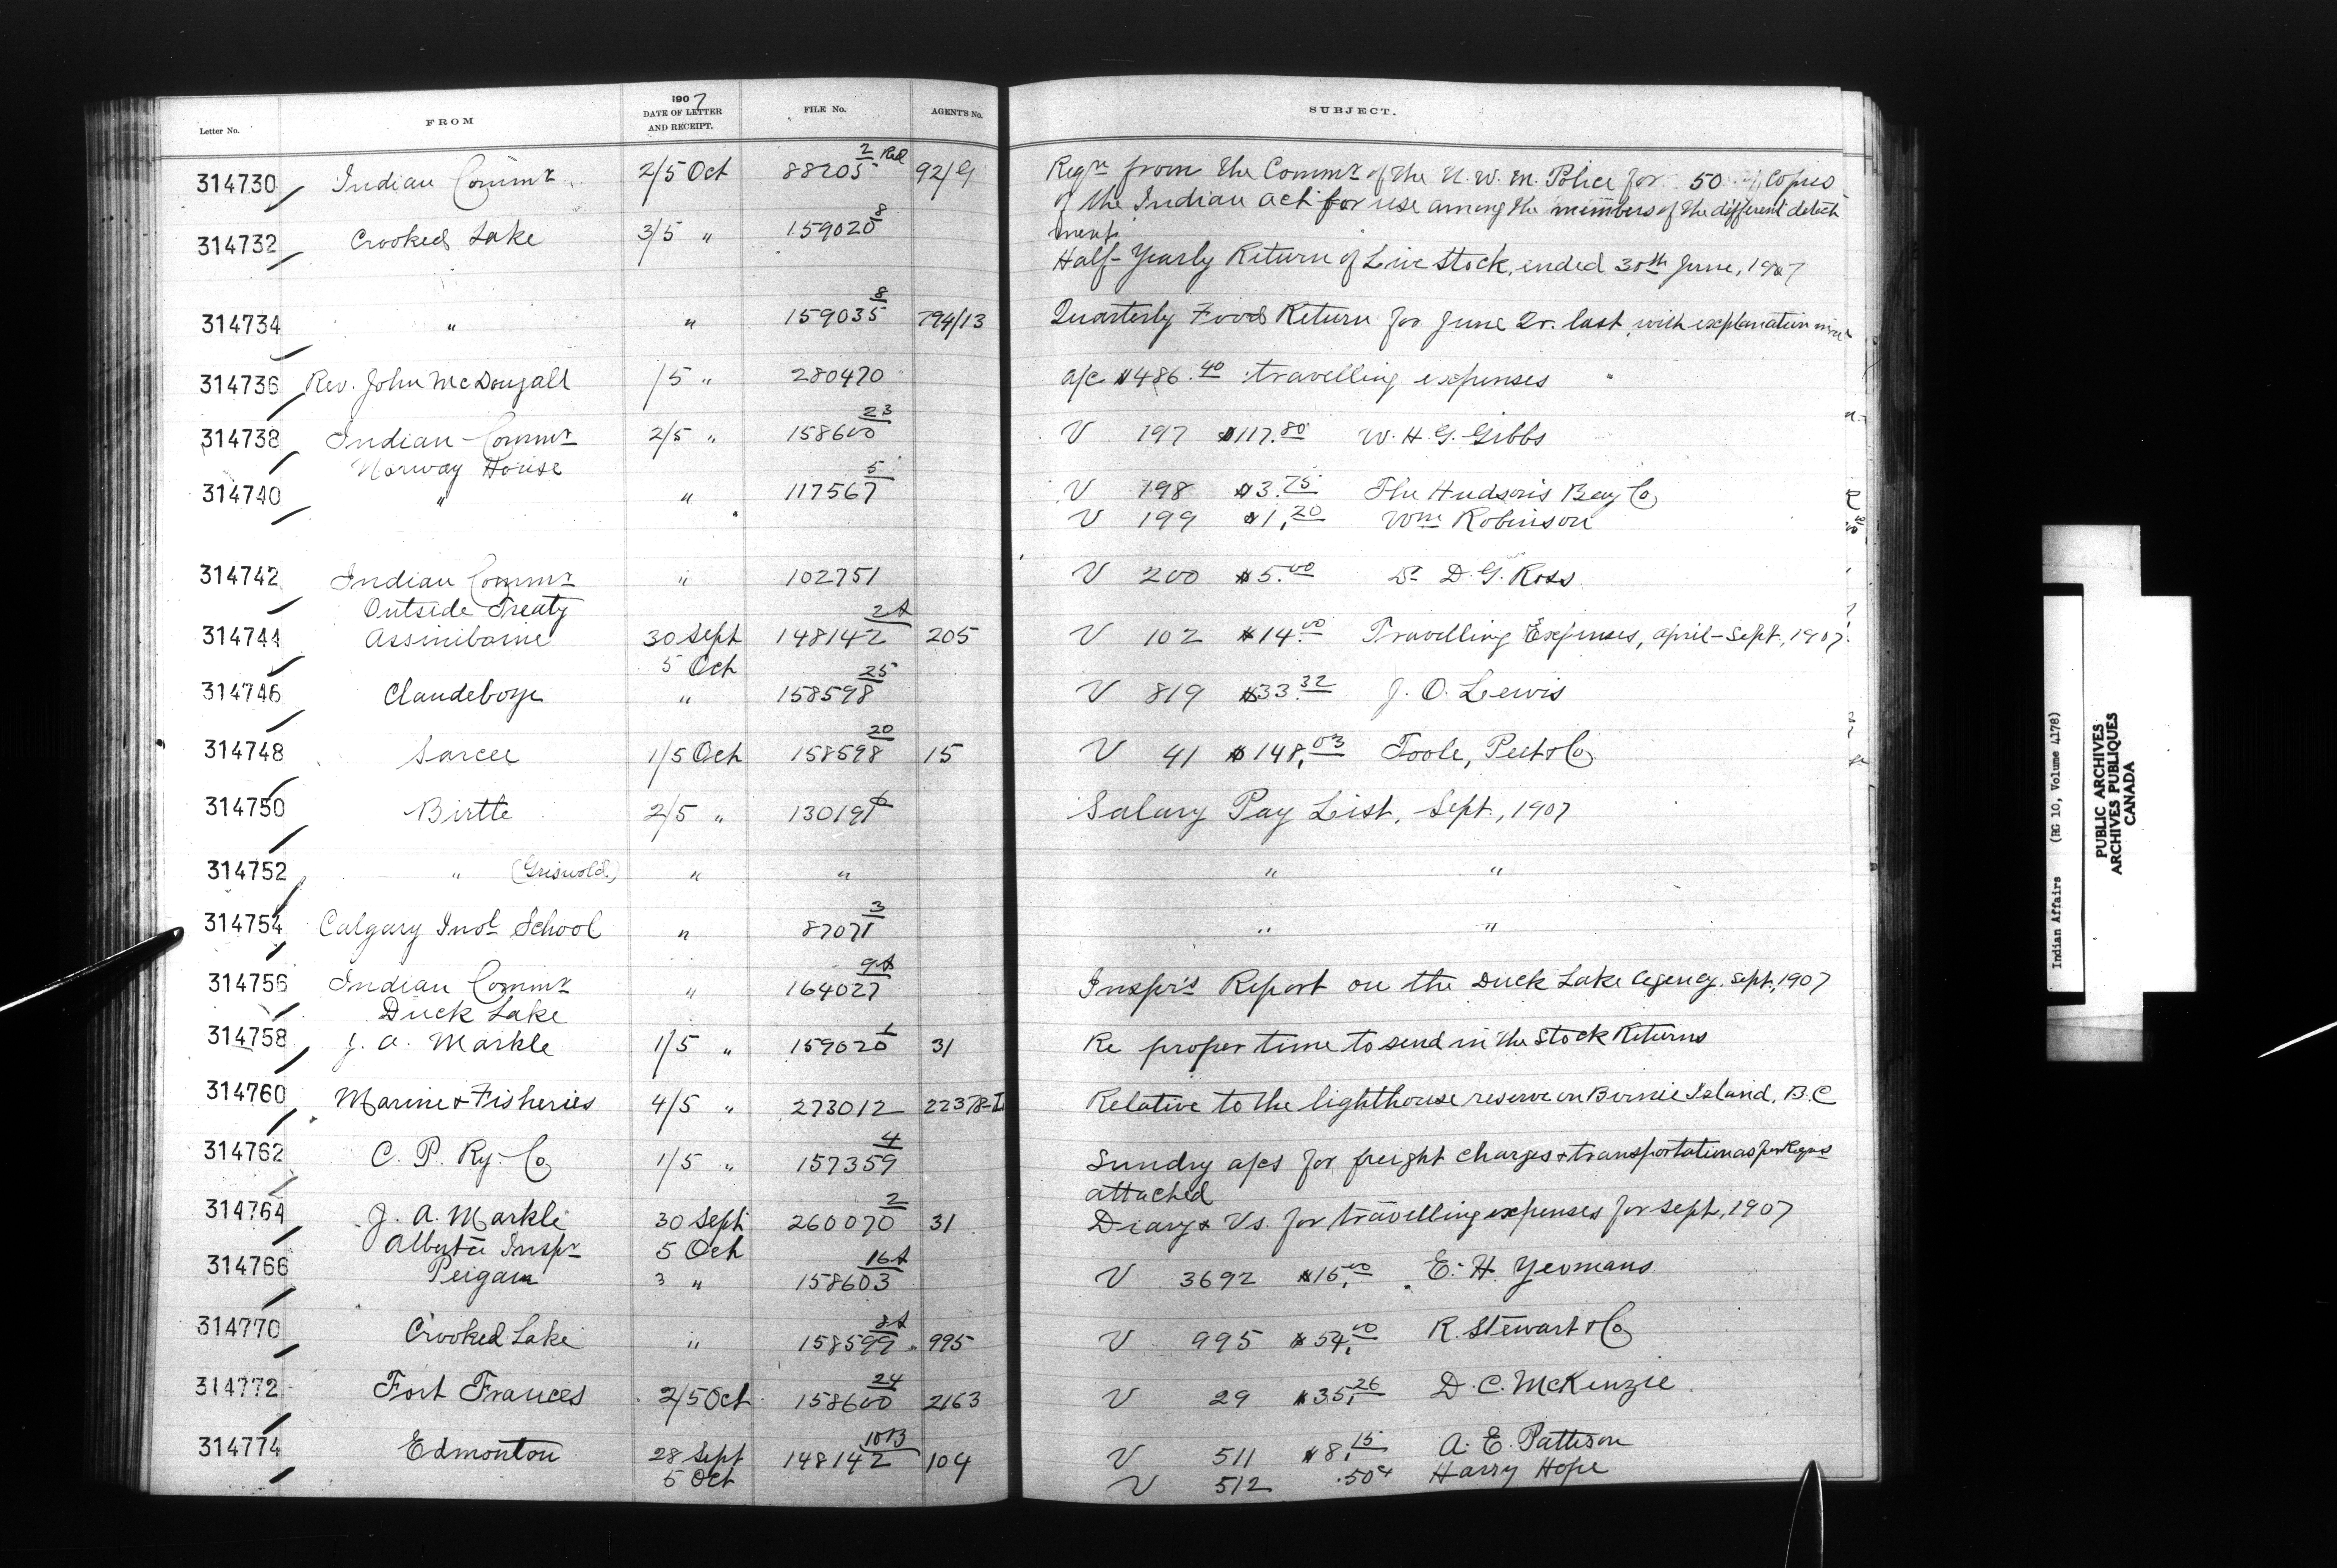 Letter No. FROM 1907 DATE OF LETTER AND RECEIPT. FILE No. AGENT'S No. SUBJECT.
314730 Indian Commr 2/5 Oct 88205 2 Red 92/G Reqn from the Commr of the N.W.M. Police for 50 Copies
of the Indian Act for use among the members of the different detach
ment
314732 Crooked Lake 3/5 " 159020 8 Half-Yearly Return of Live Stock, ended 30th June, 1907
314734 " " 159035 8 794/13 Quarterly Food Return for June Qr. last, with explanation
314736 Rev. John McDougall /5 " 280470 a/c $486.40 travelling expenses
314738 Indian Commr 2/5 " 158600 23 V 197 $117.80 W. H. G. Gibbs
Norway House
314740 " " 117567 5 V 198 $3.75 The Hudson's Bay Co
V 199 $1.20 Wm Robinson
314742 Indian Commr " 102751 V 200 $5.00 Dr D. G. Ross
Outside Treaty
314744 Assiniboine 30 Sept 148142 2A 205 V 102 $14.00 Travelling Expenses, April-Sept, 1907
5 Oct
314746 Clandeboye " 158598 25 V 819 $33.32 J. O. Lewis
314748 Sarcee 1/5 Oct 158598 20 15 V 41 $148.03 Toole, Peet & Co
314750 Birtle 2/5 " 130191 Salary Pay List, Sept., 1907
314752 " (Griswold) " " " "
314754 Calgary Indl School " 87071 3 " "
314756 Indian Commr " 164027 9A Inspr's Report on the Duck Lake Agency, Sept., 1907
Duck Lake
314758 J. A. Markle 1/5 " 159020 1 31 Re proper time to send in the Stock Returns
314760 Marine & Fisheries 4/5 " 273012 Relative to the lighthouse reserve on Birnie Island, B.C
314762 C. P. Ry. Co 1/5 " 157359 4 Sundry a/cs for freight charges & transportation as per Reqns
attached
314764 J. A. Markle 30 Sept 260070 2 31 Diary & Vs. for travelling expenses for Sept, 1907
Alberta Inspr 5 Oct
314766 Peigan 3 " 158603 16A V 3692 $15.00 E. H. Yeomans
314770 Crooked Lake " 158599 8A 995 V 995 $54.00 R. Stewart & Co
314772 Fort Frances 2/5 Oct 158600 24 2163 V 29 $35.26 D. C. McKenzie
314774 Edmonton 28 Sept 148142 10B 104 V 511 $8.15 A. E. Pattison
5 Oct V 512 .50¢ Harry Hope
Indian Affairs (RG 10, Volume 4178)
PUBLIC ARCHIVES
ARCHIVES PUBLIQUES
CANADA